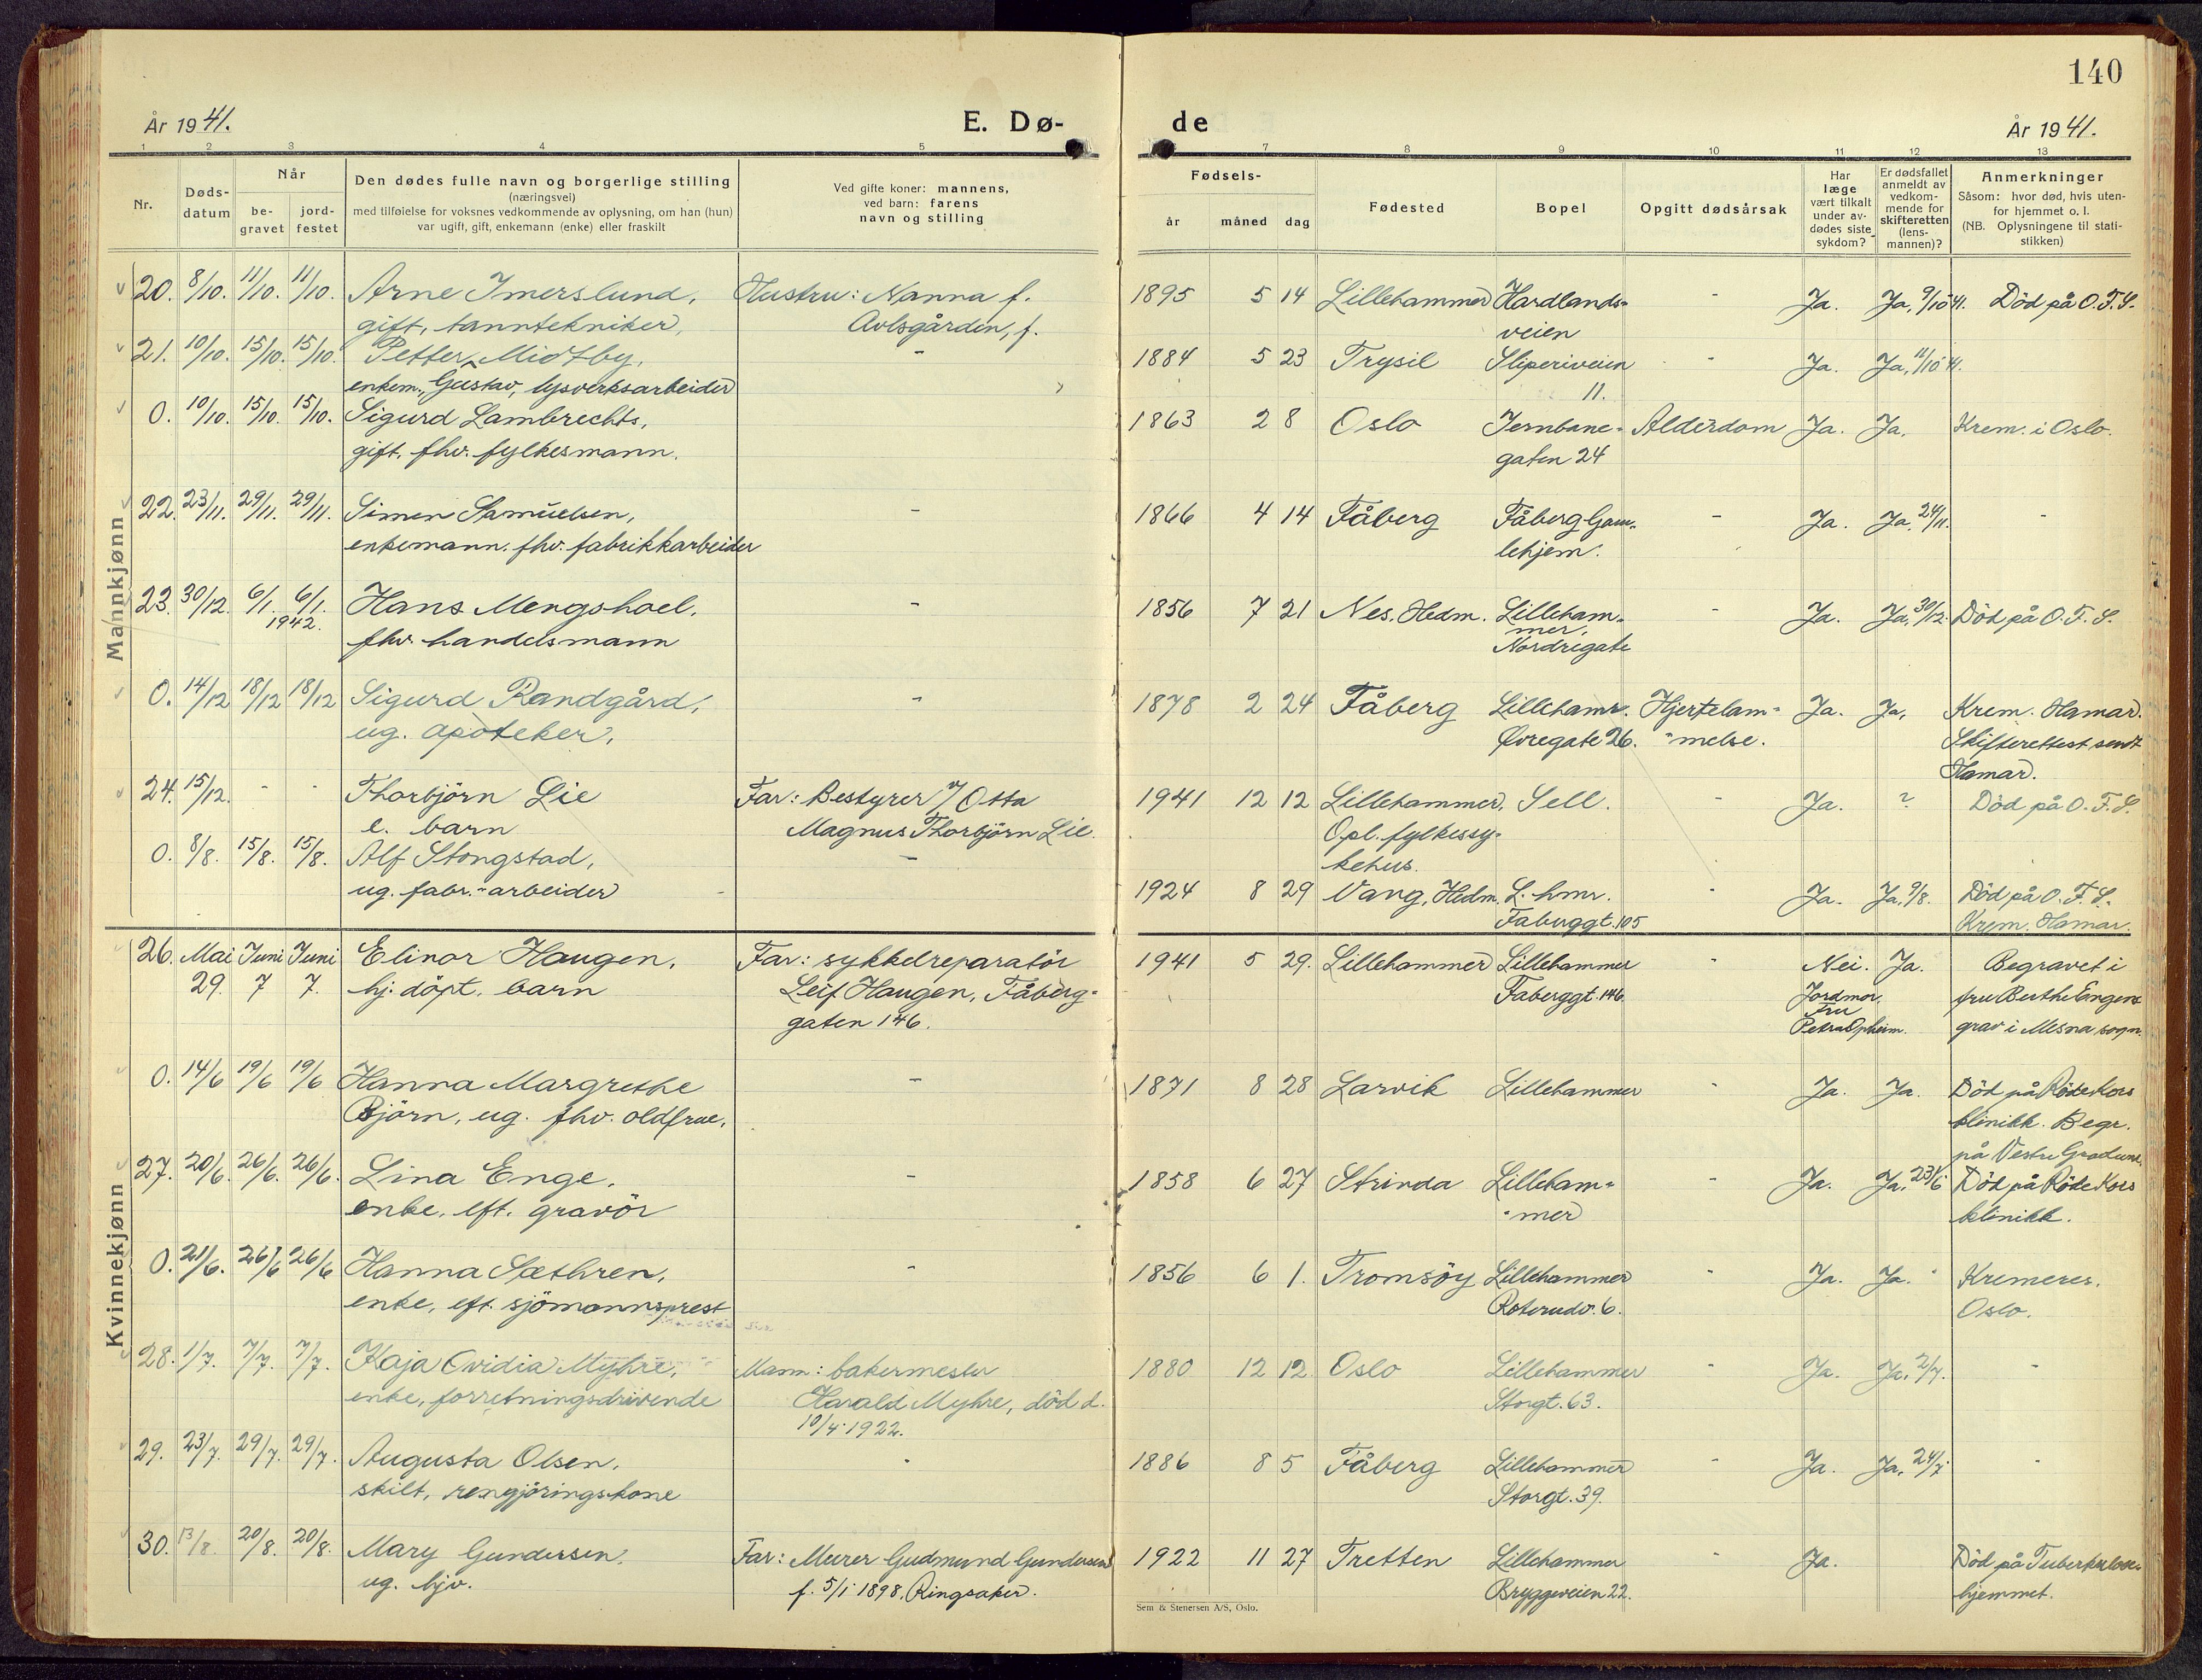 140
År 1941.
E. Dø-
de
År 1941.
1 2 3 4 5
7 8 9 10 11 12 13
Nr.
Døds-
datum
Når
be-
gravet
jord-
festet
Den dødes fulle navn og borgerlige stilling
(næringsvei)
med tilføielse for voksnes vedkommende av oplysning, om han (hun)
var ugift, gift, enkemann (enke) eller fraskilt
Ved gifte koner: mannens,
ved barn: farens
navn og stilling
Fødsels-
år måned dag
Fødested
Bopel
Opgitt dødsårsak
Har
læge
vært tilkalt
under av-
dødes siste
sykdom?
Er dødsfallet
anmeldt av
vedkom-
mende for
skifteretten
(lens-
mannen)?
Anmerkninger
Såsom: hvor død, hvis uten-
for hjemmet o. l.
(NB. Oplysningene til stati-
stikken)
Mannkjønn
20. 8/10. 11/10. 11/10. Arne Imerslund, Hustru: Nanna f.
gift, tanntekniker, Avlsgården, f.
1895 5 14 Lillehammer Hardlands- - Ja. Ja, 9/10 41. Död på O.F.S.
veien
21. 10/10. 15/10. 15/10. Petter Midtby, -
enkem., Gustav, lysverksarbeider
1884 5 23 Trysil Sliperiveien - Ja. Ja, 11/10 41.
11.
0. 10/10. 15/10. 15/10. Sigurd Lambrechts,
gift, fhv. fylkesmann.
1863 2 8 Oslo Jernbane- Alderdom Ja. Ja. Krem. i Oslo.
gaten 24
22. 23/11. 29/11. 29/11. Simen Samuelsen, -
enkemann. fhv. fabrikkarbeider
1866 4 14 Fåberg Fåberg Gam- - Ja. Ja, 24/11. -
lehjem.
23. 30/12. 6/1. 6/1. Hans Mengshoel, -
1942.
fhv. handelsmann
1856 7 21 Nes, Hedm. Lilleham- - Ja. Ja, 30/12. Död på O.F.S.
mer,
Nordregate
0. 14/12 18/12 18/12 Sigurd Randgård, -
ug. apoteker,
1878 2 24 Fåberg Lillehamr. Hjertelam- Ja. Ja, Krem. Hamar.
Øvregate 26. -melse. Skifterettest sendt
Hamar.
24. 15/12. - - Thorbjörn Lie Far: Bestyrer v/ Otta
e. barn Magnus Thorbjörn Lie.
1941 12 12 Lillehammer, Sell. - Ja. ? Död på O.F.S.
Opl. fylkessy-
kehus.
0. 8/8. 15/8. 15/8. Alf Stongstad, -
ug. fabr.-arbeider
1924 8 29 Vang, Hedm. L.hmr. - Ja. Ja, 9/8. Död på O.F.S.
Faberggt. 105 Krem. Hamar.
Kvinnekjønn
26. Mai Juni Juni Elinor Haugen, Far: sykkelreparatör
29. 7 7. hj. döpt, barn Leif Haugen, Fåberg-
gaten 146.
1941 5 29. Lillehammer Lillehammer - Nei. Ja. Begravet i
Faberggt. 146 Jordmor, fru Berthe Engens
fru
Petra Opheim. grav i Mesna sogn.
0. 14/6 19/6 19/6 Hanna Margrethe -
Björn, ug. fhv. oldfrue,
1871 8 28 Larvik Lillehammer - Ja. Ja. Död på Röde Kors
klinikk. Begr.
på Vestre Gravlund.
27. 20/6. 26/6. 26/6. Lina Enge, -
enke, eft. gravör
1858 6 27 Strinda Lilleham- - Ja. Ja, 23/6 Död på Röde Kors
-mer klinikk.
0. 21/6. 26/6 26/6 Hanna Sæthren, -
enke, eft. sjömannsprest
1856 6 1. Tromsöy Lillehammer - Ja. Ja. - Kremeres.
Roterudv. 6. Oslo.
28. 1/7. 7/7. 7/7. Kaja Ovidia Myhre, Mann: bakermester
enke, forretningsdrivende Harald Myhre, död d.
10/4 1922.
1880 12 12 Oslo Lillehammer - Ja. Ja, 2/7. -
Storgt. 63.
29. 23/7. 29/7. 29/7. Augusta Olsen, -
skilt, rengjöringskone
1886 8 5 Fåberg Lillehammer - Ja. Ja, 24/7 -
Storgt. 39.
30. 13/8. 20/8. 20/8. Mary Gundersen, Far: Murer Gudmund Gundersen
ug. hjv. f. 5/1 1898, Ringsaker.
1922 11 27 Tretten Lillehammer - Ja. Död på Tuberkulose-
Bryggeveien 22. hjemmet.
Sem & Stenersen A/S, Oslo.